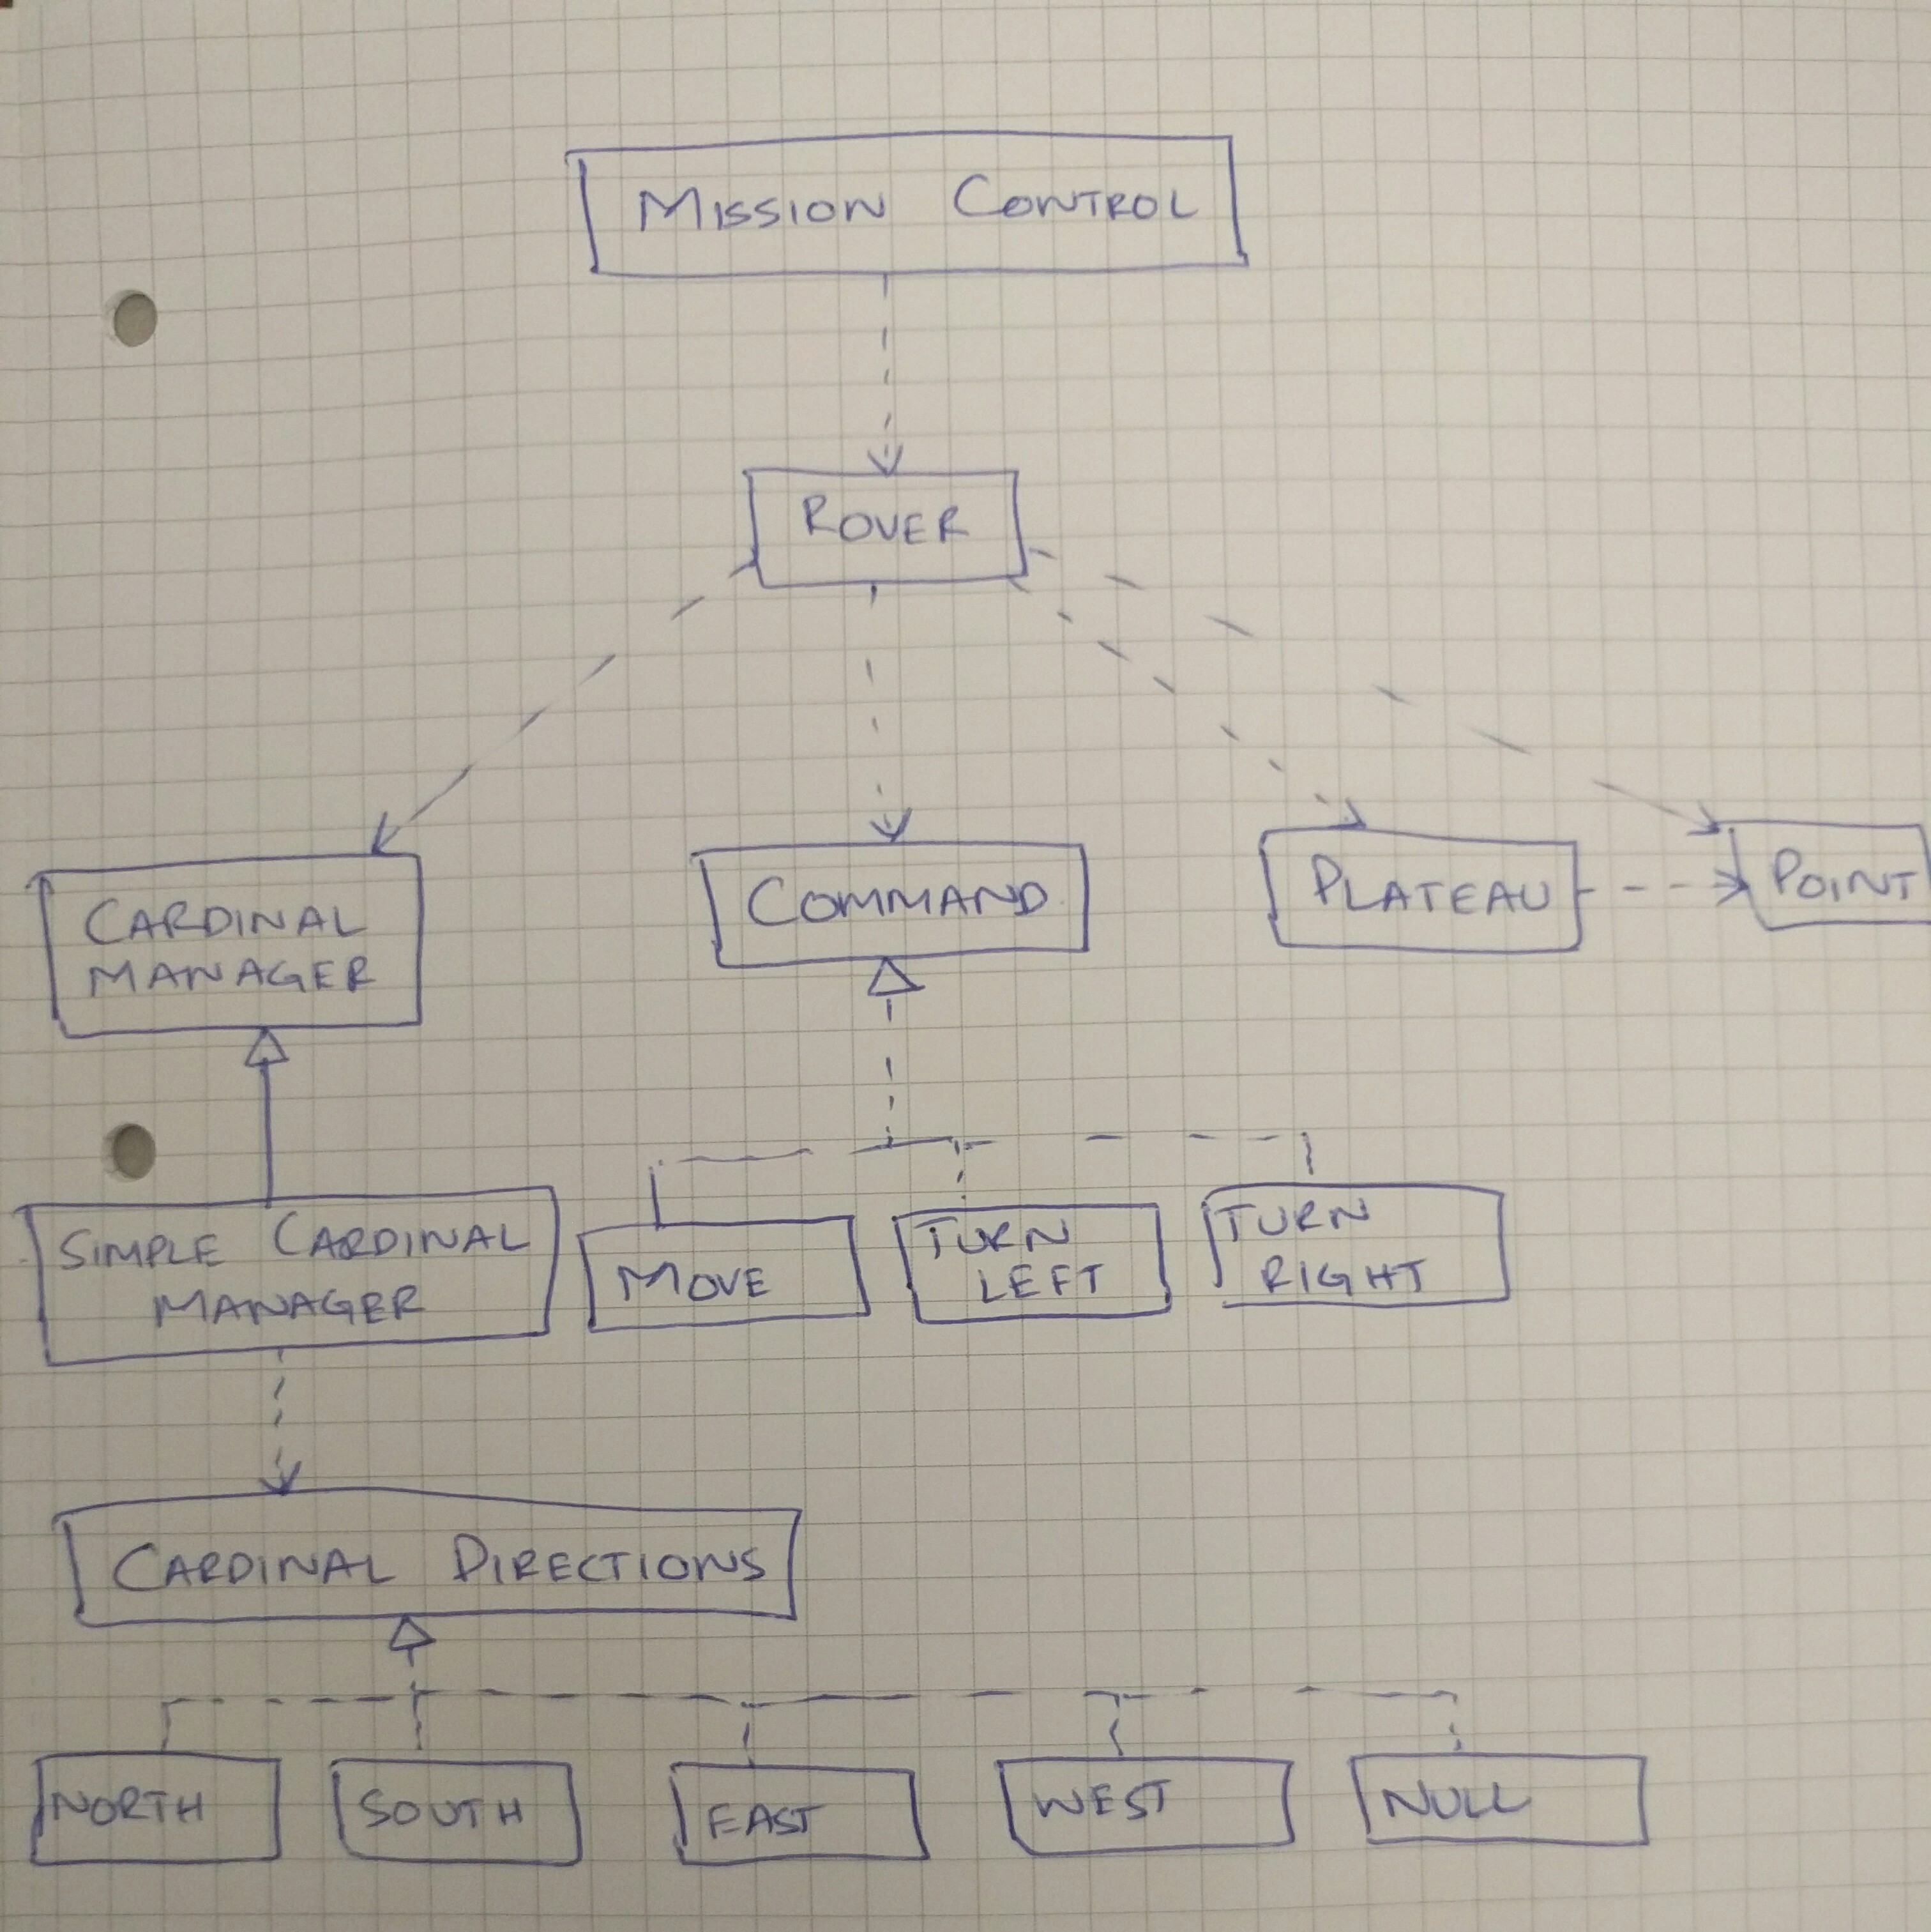 MISSION CONTROL
ROVER
CARDINAL
MANAGER
COMMAND
PLATEAU
POINT
SIMPLE CARDINAL
MANAGER
MOVE
TURN
LEFT
TURN
RIGHT
CARDINAL DIRECTIONS
NORTH
SOUTH
EAST
WEST
NULL